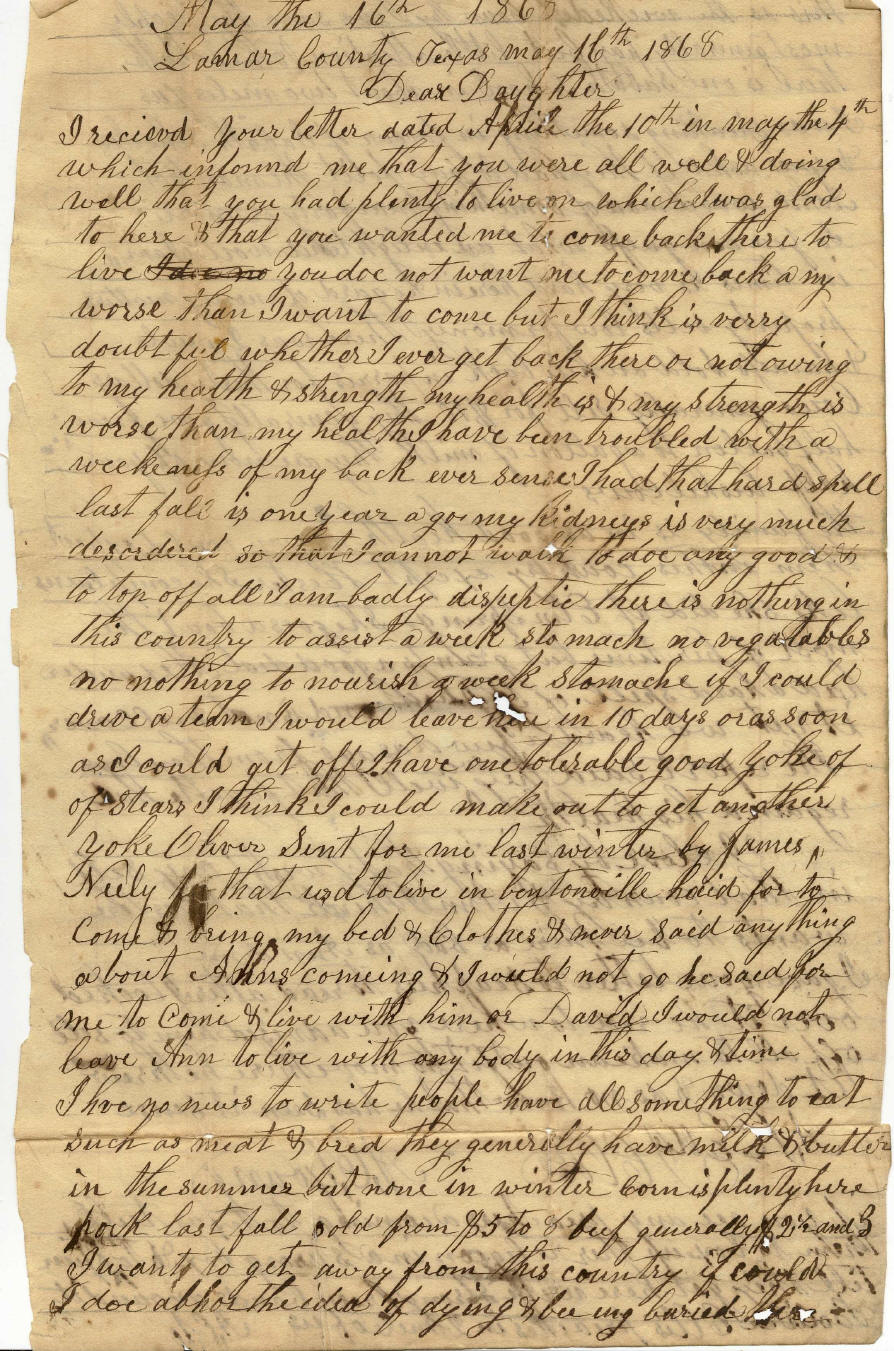 May the 16th 186
Lamar County Texas may 16th 1868
Dear Daughter
I recievd your letter dated April the 10th in may the 4th
which informd me that you were all well & doing
well that you had plenty to live on which I was glad
to here & that you wanted me to come back there to
live I doe no you doe not want me to come back any
worse than I want to come but I think is verry
doubt ful whether I ever get back there or not owing
to my health & strength my health is & my strength is
worse than my health I have been troubled with a
weekeness of my back ever sense I had that hard spell
last fall is one year a go my kidneys is very much
desordered so that I cannot walk to doe any good &
to top off all I am badly dispeptic there is nothing in
this country to assist a week stomach no vegatables
no nothing to nourish a week stomache if I could
drive a team I would leave here in 10 days or as soon
as I could get off I have one tolerable good yoke of
of stears I think I could make out to get another
yoke Oliver Sent for me last winter by James
Neely that usd to live in bentonville haid for to
come & bring my bed & Clothes & never said any thing
about Anns comeing & I would not go he said for
me to Come & live with him or David I would not
leave Ann to live with any body in this day & time
I hve no news to write people have all something to eat
such as meat & bred they generally have milk & butter
in the summer but none in winter Corn is plenty here
pork last fall sold from $5 to 8 beef generally $2½ and 3
I want to get away from this country if could
I doe abhor the idea of dying & bee ing buried